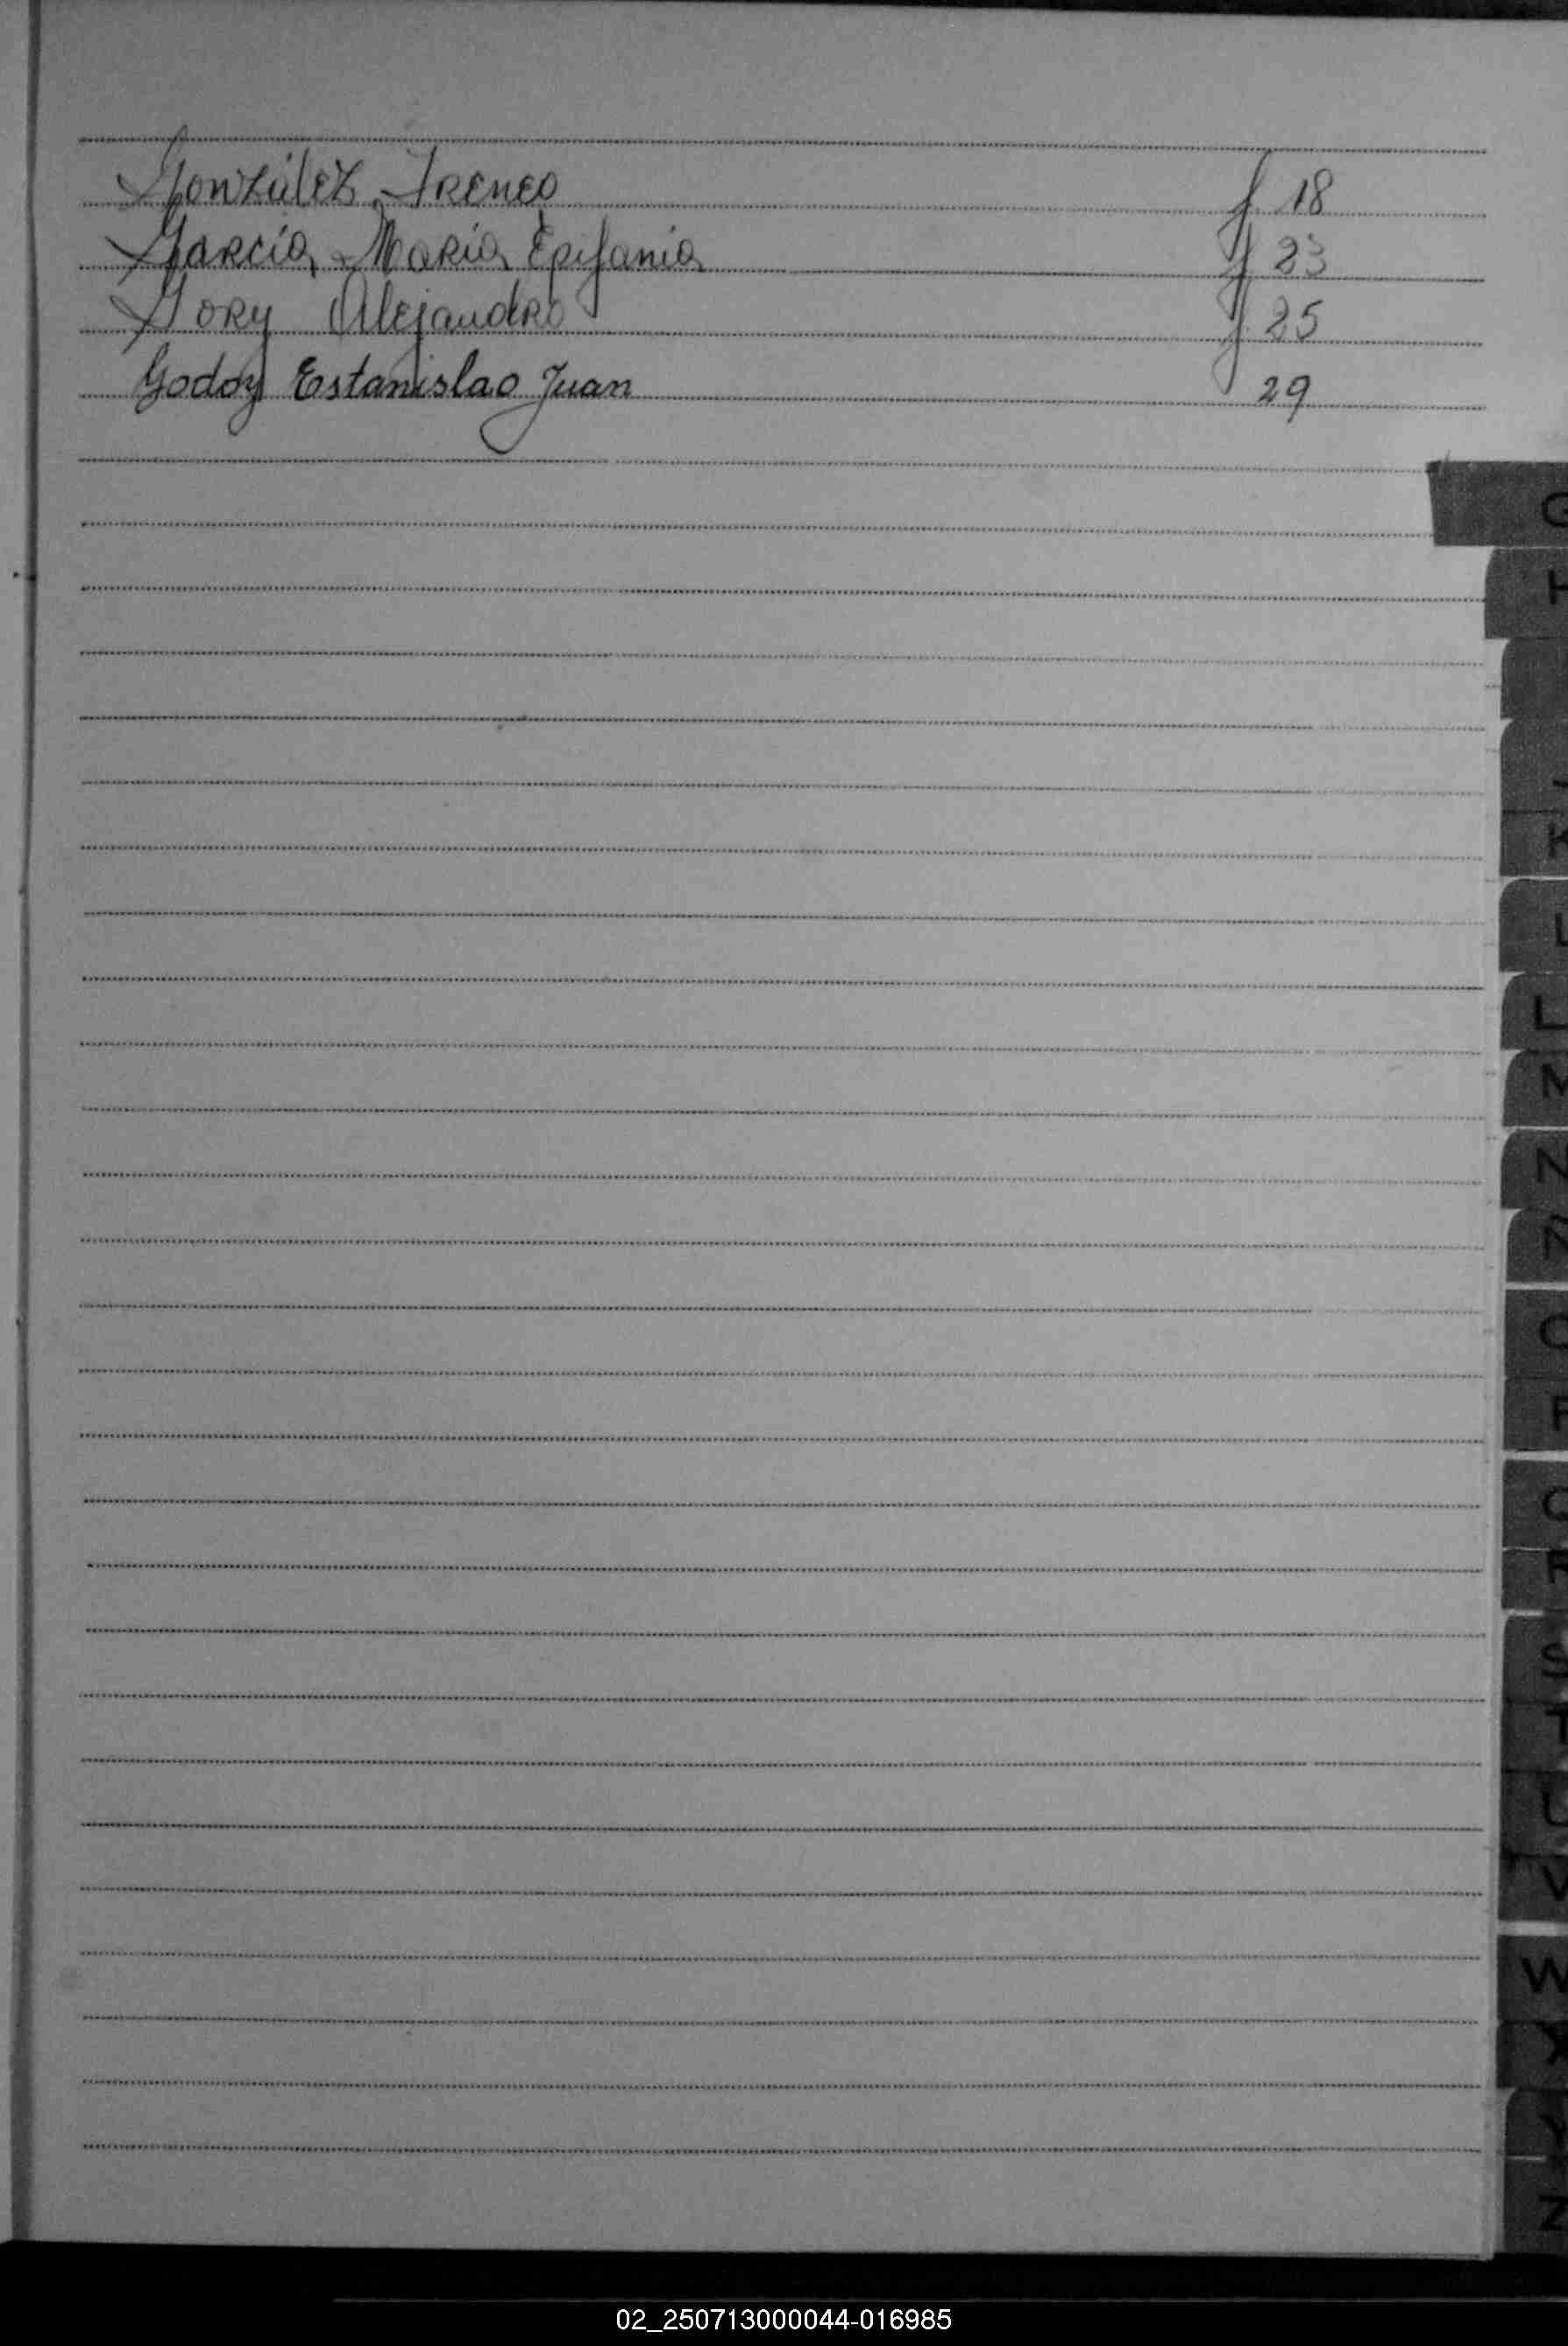 González, Ireneo f. 18
García, María Epifania f 23
Gory Alejandro f. 25
Godoy Estanislao Juan 29
G
H
J
K
L
LL
M
N
Ñ
O
P
Q
R
S
T
U
V
W
X
Y
Z
02_250713000044-016985